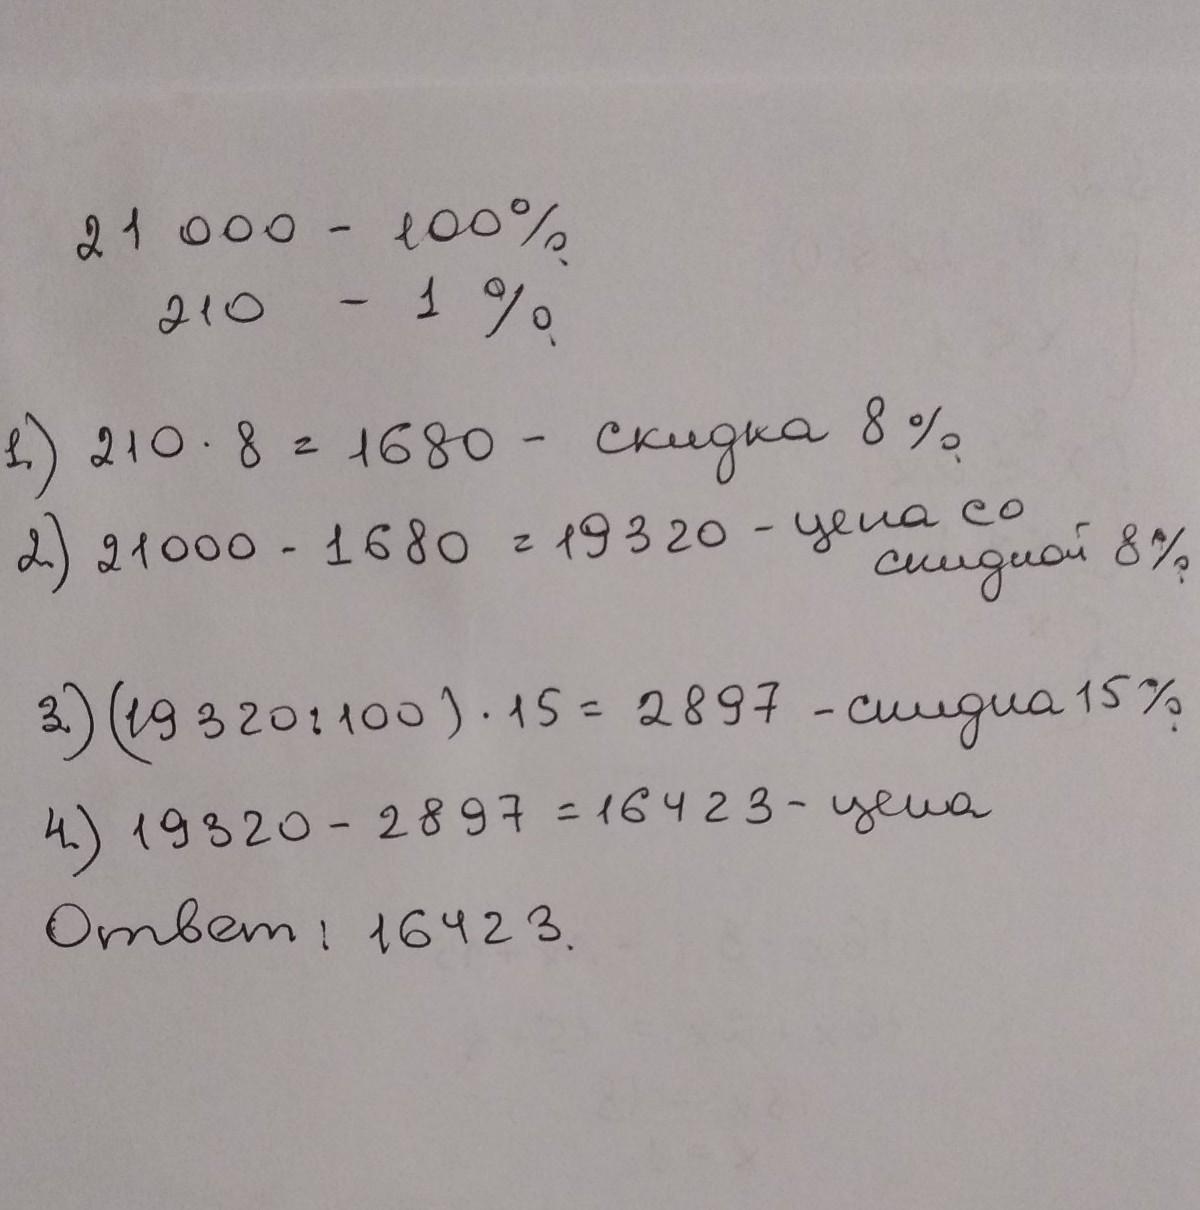 21 000 - 100%
210 - 1 %
1) 210 · 8 = 1680 - скидка 8 %
2) 21000 - 1680 = 19320 - цена со
скидкой 8%
3) (19320:100) · 15 = 2897 - скидка 15%
4) 19320 - 2897 = 16423 - цена
Ответ: 16423.